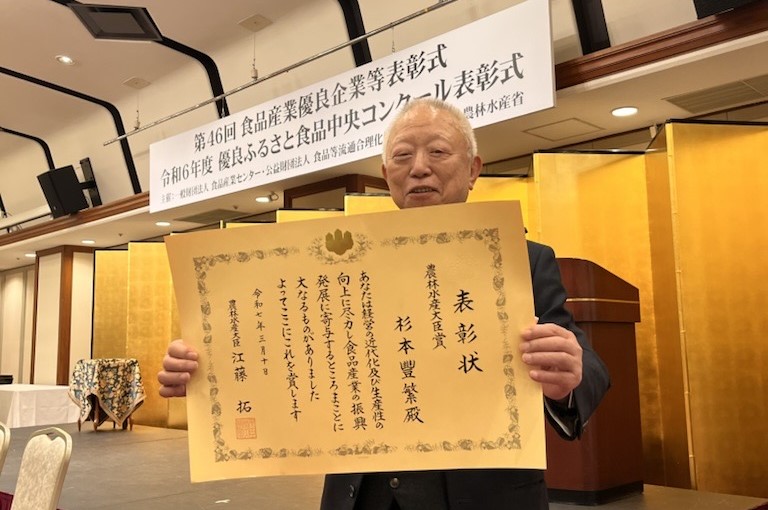 第46回 食品産業優良企業等表彰式
令和6年度 優良ふるさと食品中央コンクール表彰式
主催:一般財団法人 食品産業センター・公益財団法人 食品等流通合理化
農林水産省
表彰状
農林水産大臣賞
杉本豊繁殿
あなたは経営の近代化及び生産性の
向上に尽力し食品産業の振興
発展に寄与するところまことに
大なるものがありました
よってここにこれを賞します
令和七年三月十日
農林水産大臣 江藤 拓